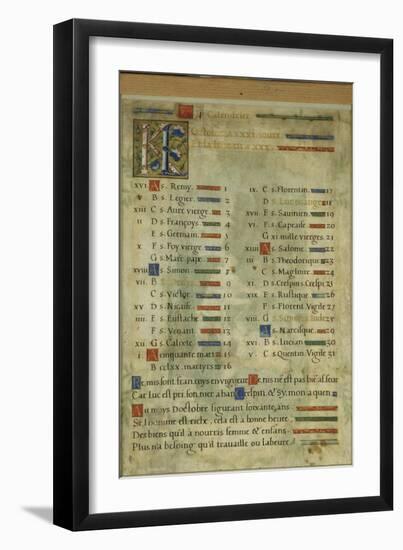 Calendrier
Octobre a xxxi jours
Et la lune en a xxx
xvi A s. Remy. 1
v B s. Legier. 2
xiii C s. Aure vierge. 3
ii D s. Françoys 4
E s. Germain 5
x F s. Foy vierge 6
G s. Marc pape 7
xviii A s. Simon 8
vii B s. 9
C s. Victor 10
xv D s. Nicaise 11
iiii E s. Eustache 12
F s. Venant 13
xii G s. Calixte 14
i A cinquante mart. 15
B cclxx. martyrs 16
ix C s. Florentin 17
D s. Luc 18
xvii E s. Savinien 19
vi F s. Capraise 20
G xi mille vierges 21
xiiii A s. Salome 22
iii B s. Theodorique 23
C s. Magloire 24
xi D s. Crespin s. Crespi 25
xix E s. Rustique 26
F s. Florent Vigile 27
viii G s. Simon s. Iude 28
A s. Narcisque 29
xvi B s. Lucian 30
v C s. Quentin. Vigile 31
Remis sont françoys en vigueur Denis n'est pas bie asseur
Car Luc est prisonnier Crespin & Sy
Au moys Doctobre figurant soixante ans
Si l'homme est riche, cela est a bonne heure
Des biens qu'il a nourrist femme & enfans
Plus n'a besoing qu'il travaille ou labeure